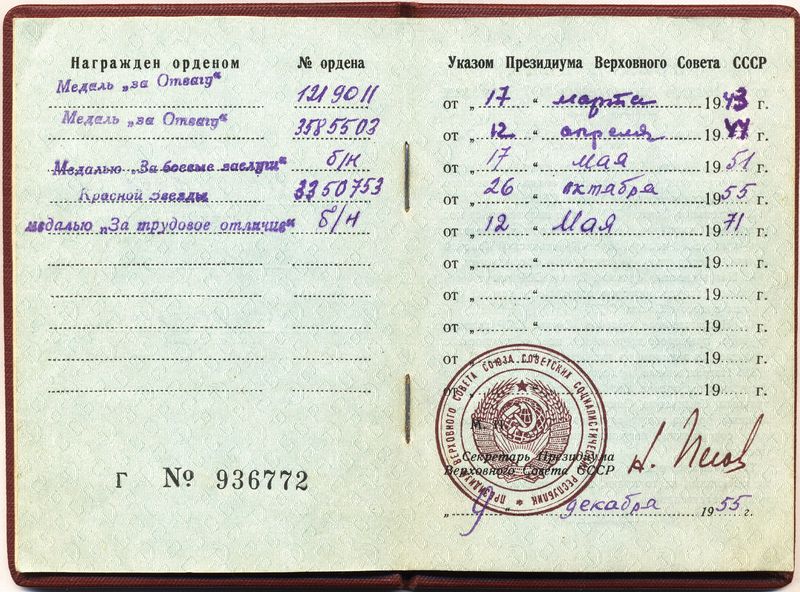 Награжден орденом № ордена
Медаль „за Отвагу“ 1219011
Медаль „за Отвагу“ 3585503
Медалью „За боевые заслуги“ б/н
Красной Звезды 3350753
медалью „За трудовое отличие“ б/н
Г № 936772
Указом Президиума Верховного Совета СССР
от „ 17 “ марта 1943 г.
от „ 12 “ апреля 1944 г.
от „ 17 “ мая 1951 г.
от „ 26 “ октября 1955 г.
от „ 12 “ Мая 1971 г.
от „ “ 19 г.
от „ “ 19 г.
от „ “ 19 г.
от „ “ 19 г.
от „ “ 19 г.
М. П.
ПРЕЗИДИУМ ВЕРХОВНОГО СОВЕТА СОЮЗА СОВЕТСКИХ СОЦИАЛИСТИЧЕСКИХ РЕСПУБЛИК
Секретарь Президиума
Верховного Совета СССР
„ 9 “ декабря 1955 г.